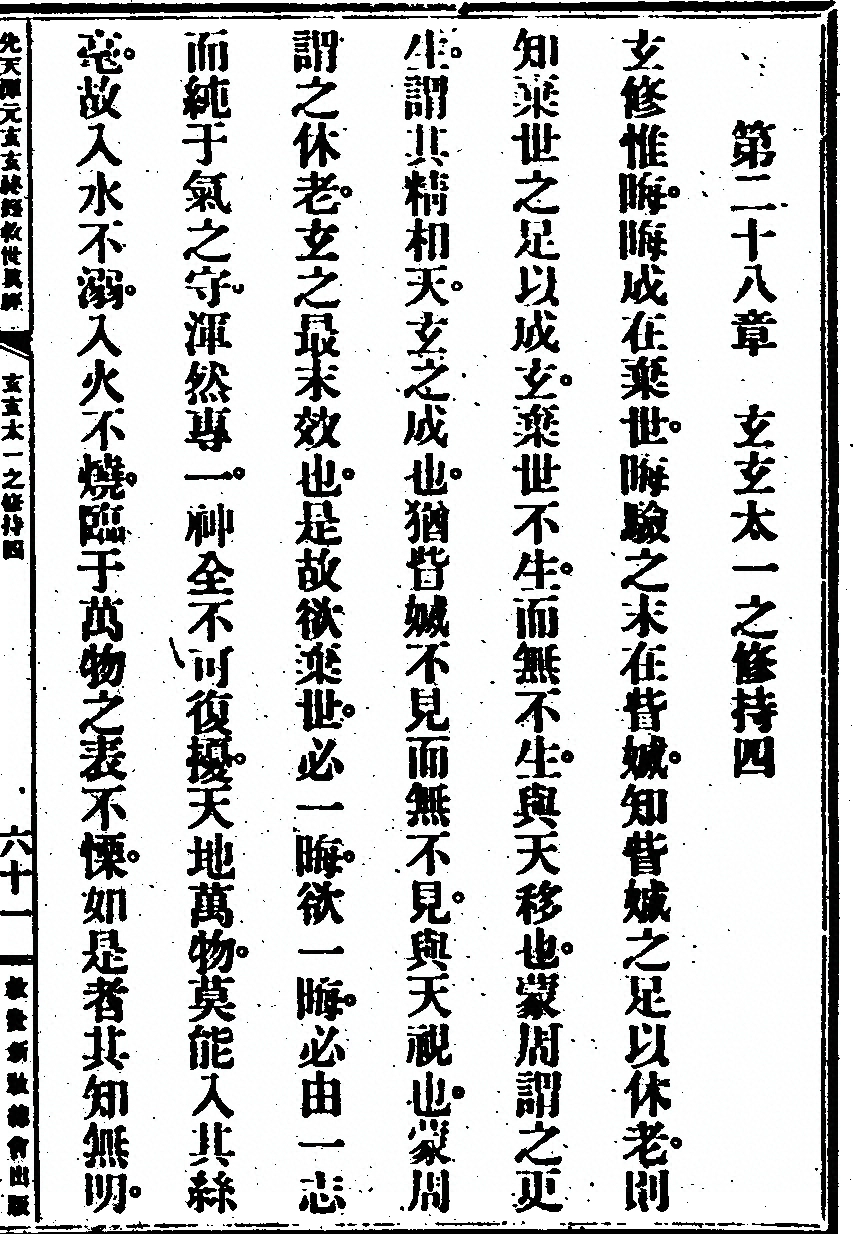 第二十八章　玄玄太一之修持四
玄修惟晦。晦成在棄世。晦驗之末在眥媙。知眥媙之足以休老。則
知棄世之足以成玄。棄世不生。而無不生。與天移也。蒙周謂之更
生。謂其精相天。玄之成也。猶眥媙不見而無不見。與天視也。蒙周
謂之休老。玄之最末效也。是故欲棄世。必一晦。欲一晦。必由一志
而純于氣之守。渾然專一。神全不可復擾。天地萬物。莫能入其絲
毫。故入水不溺。入火不燒。臨于萬物之表不慄。如是者其知無明。
先天渾元玄玄祕籙救世真經
玄玄太一之修持四
六十一
救世新教總會出版